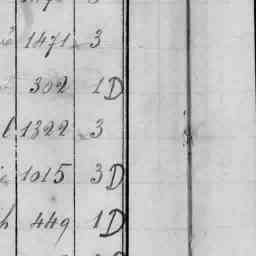 1471 3
302 1D
1322 3
1015 3D
h 449 1D